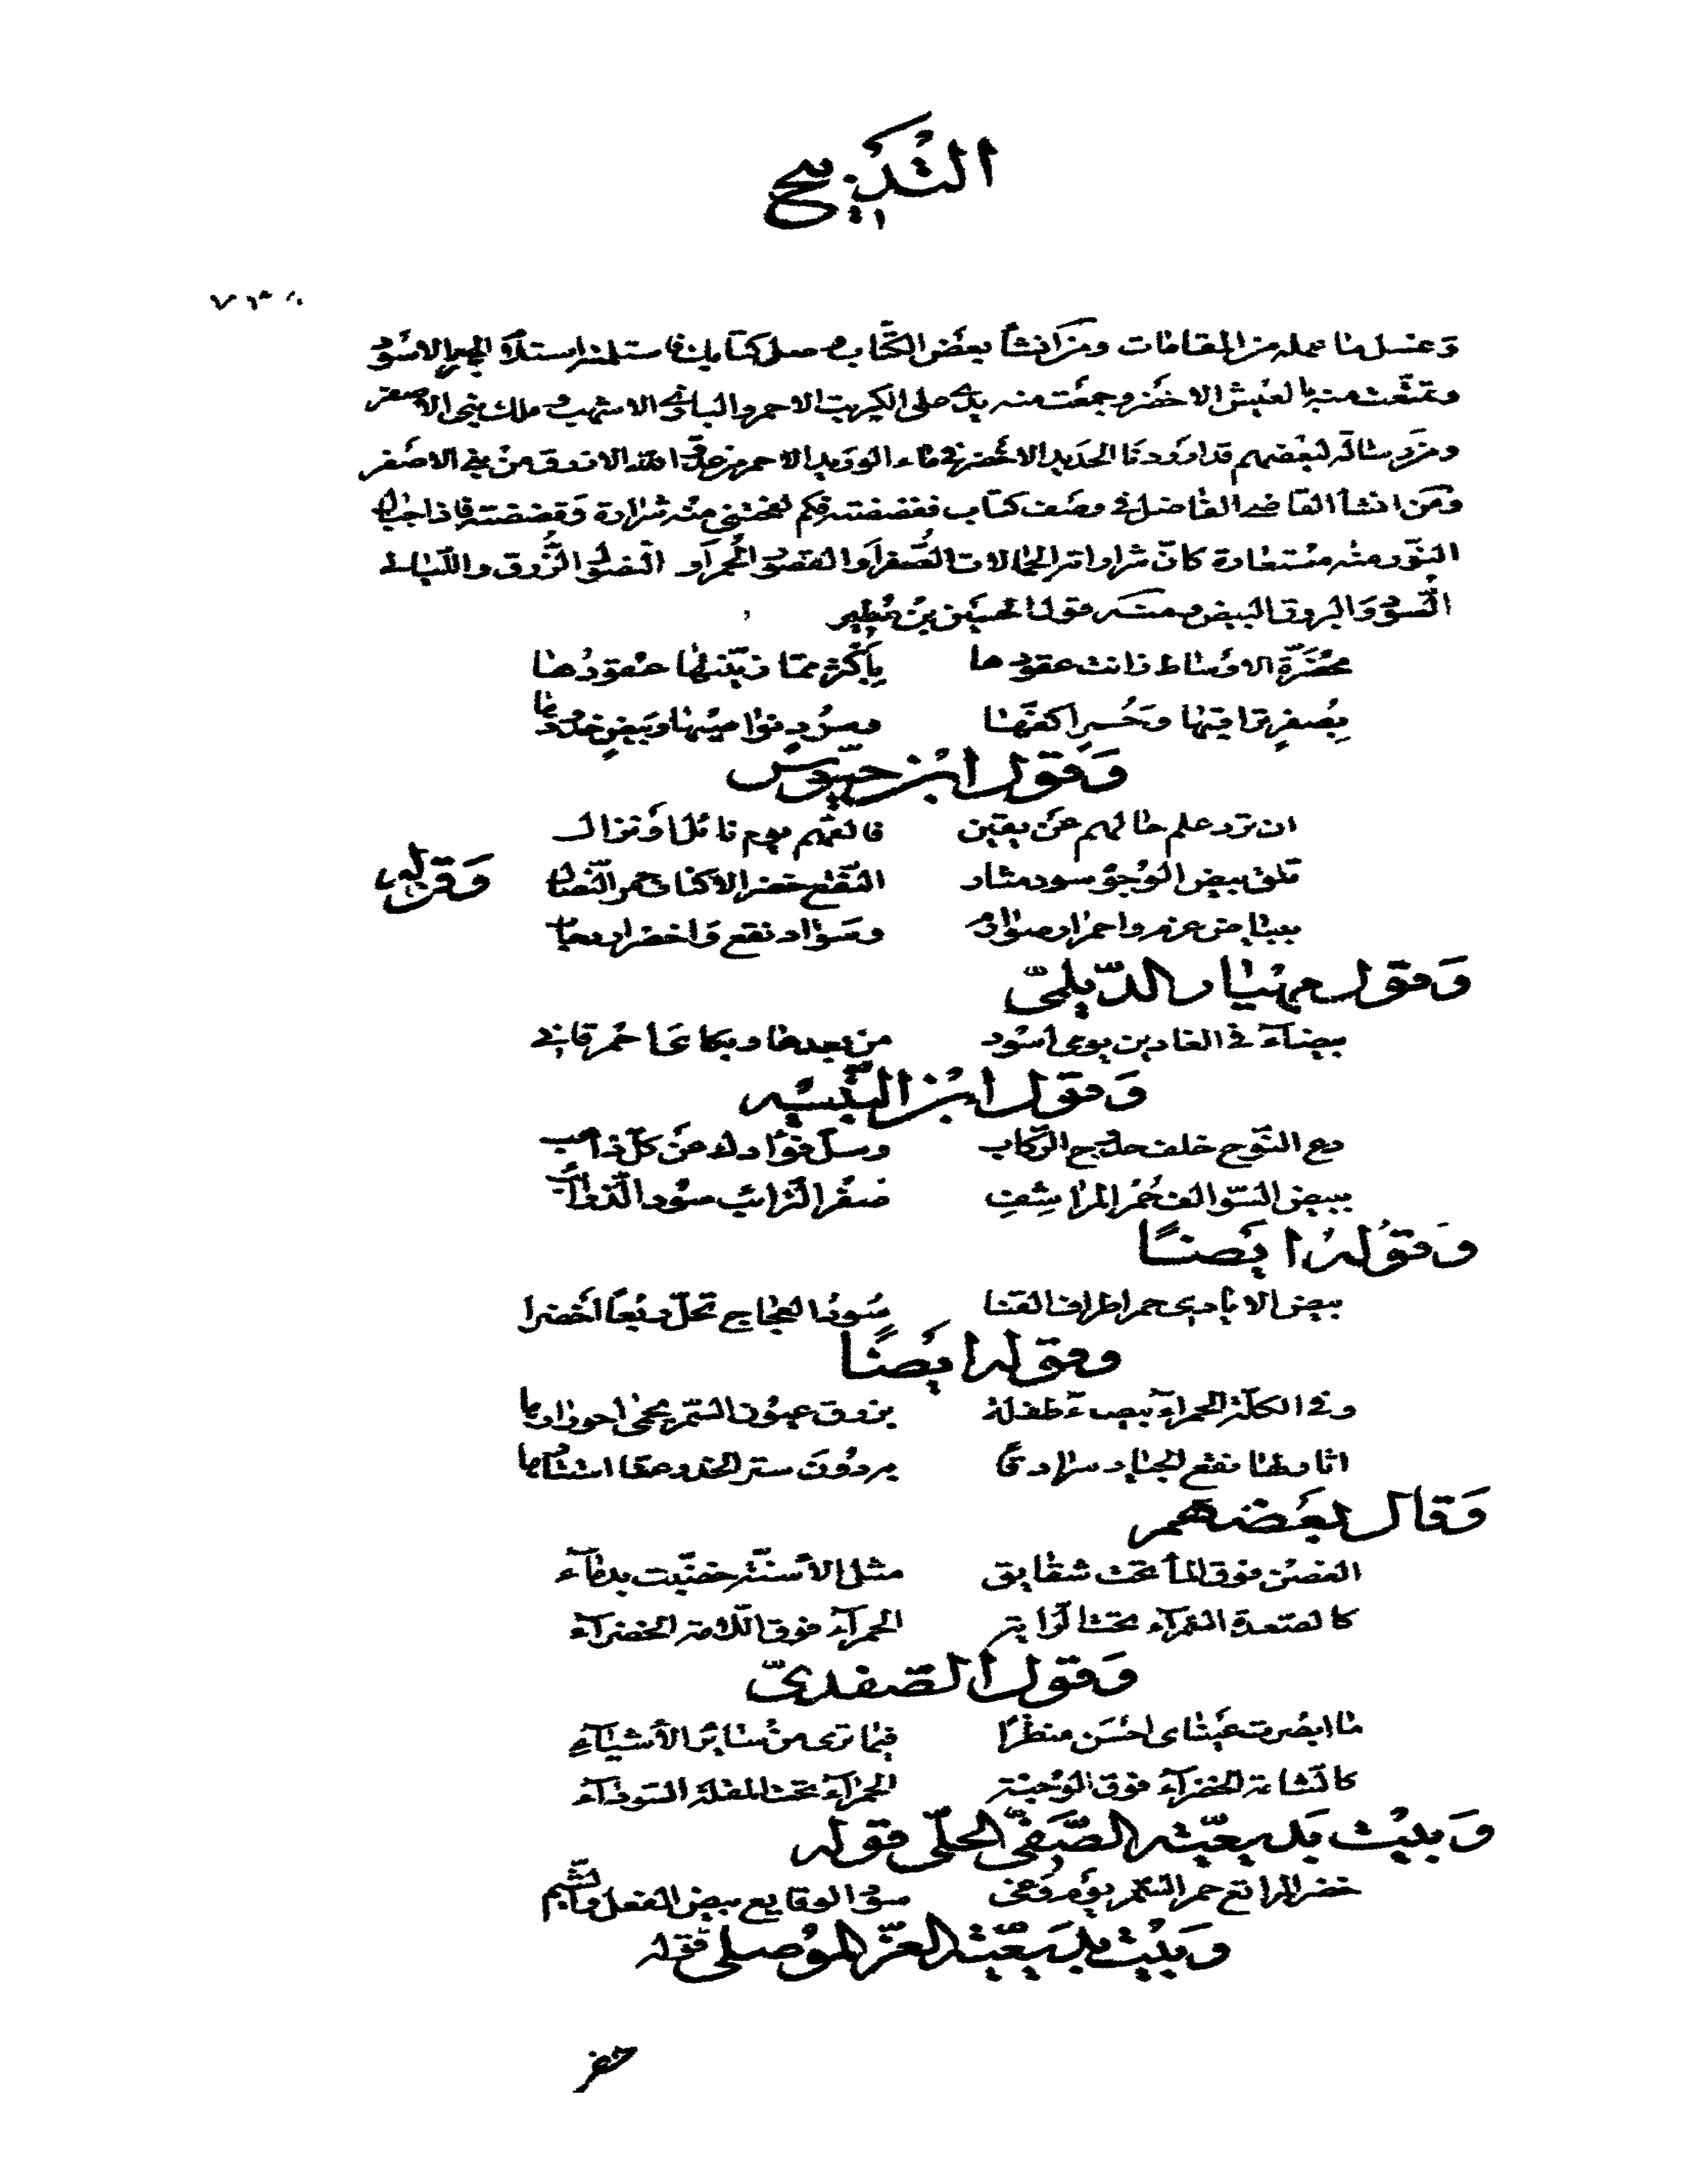 التدبيج
وغسل ما عمله من المقامات ومن انشأ بعض الكتاب وصل كتابك فاستلمته استلام الحجر الاسود
وتمتعت منه بالعيش الاخضر وجمعت منه يدى على الكبريت الاحمر والبازى الاشهب وملك بنى الاصفر
ومن رسالة لبعضهم قد اوردنا الحديد الاخضر فى ماء الوريد الاحمر من عدو الله الازرق من بنى الاصفر
ومن انشا القاضى الفاضل فى وصف كتاب ففضضته فكم لفحتنى منه شرارة وقضضته فاذا جبال
النور منه مستعارة كان شراراته الجمالات الصفر او القصور الحمر او النصول الزرق والليالى
السود والبروق البيض ومنه قول الحسين بن مطير
مخضرة الاوساط زانت عقودها بأكثر مما زينتها عقودها
بصفر تراقيها وحمر اكفها وسود نواصيها وبيض خدودها
وقول ابن حيوس
ان ترد علم حالهم عن يقين فالقهم يوم نائل او نزال
تلق بيض الوجوه سود مثار النقع خضر الاكناف حمر النصال
وقوله
ببياض عرض واحمرار صوارم وسواد نقع واخضرار رحاب
وقول مهيار الديلمى
بيضاء فى الغادين يومى اسود من بعدها وبكاى احمر قانى
وقول ابن النبيه
دع النوح خلف حدوج الركاب وسل فؤادك عن كل ذاهب
ببيض السوالف حمر المراشف صفر الترائب سود الذوائب
وقوله ايضا
بيض الايادى حمر اطراف القنا سود العجاج تحل ربعا اخضرا
وقوله ايضا
وفى الكلة الحمراء بيضاء طفلة بزرق عيون السمر يحمى احورارها
اثار لها نقع الجياد سرادقا به دون ستر الخدر عنا استتارها
وقال بعضهم
الغصن فوق الماء تحت شقايق مثل الأسنة خضبت بدماء
كالصعدة السمراء تحت الراية الحمراء فوق اللامة الخضراء
وقول الصفدى
ما ابصرت عيناى احسن منظرا فيما ترى من سائر الأشياء
كالشامة الخضراء فوق الوجنة الحمراء تحت المقلة السوداء
وبيت بديعيته الصفى الحلى قوله
خضر المرابع حمر السمر يوم وغى سود الوقايع بيض الفعل والشيم
وبيت بديعيته العز الموصلى قوله
خضر